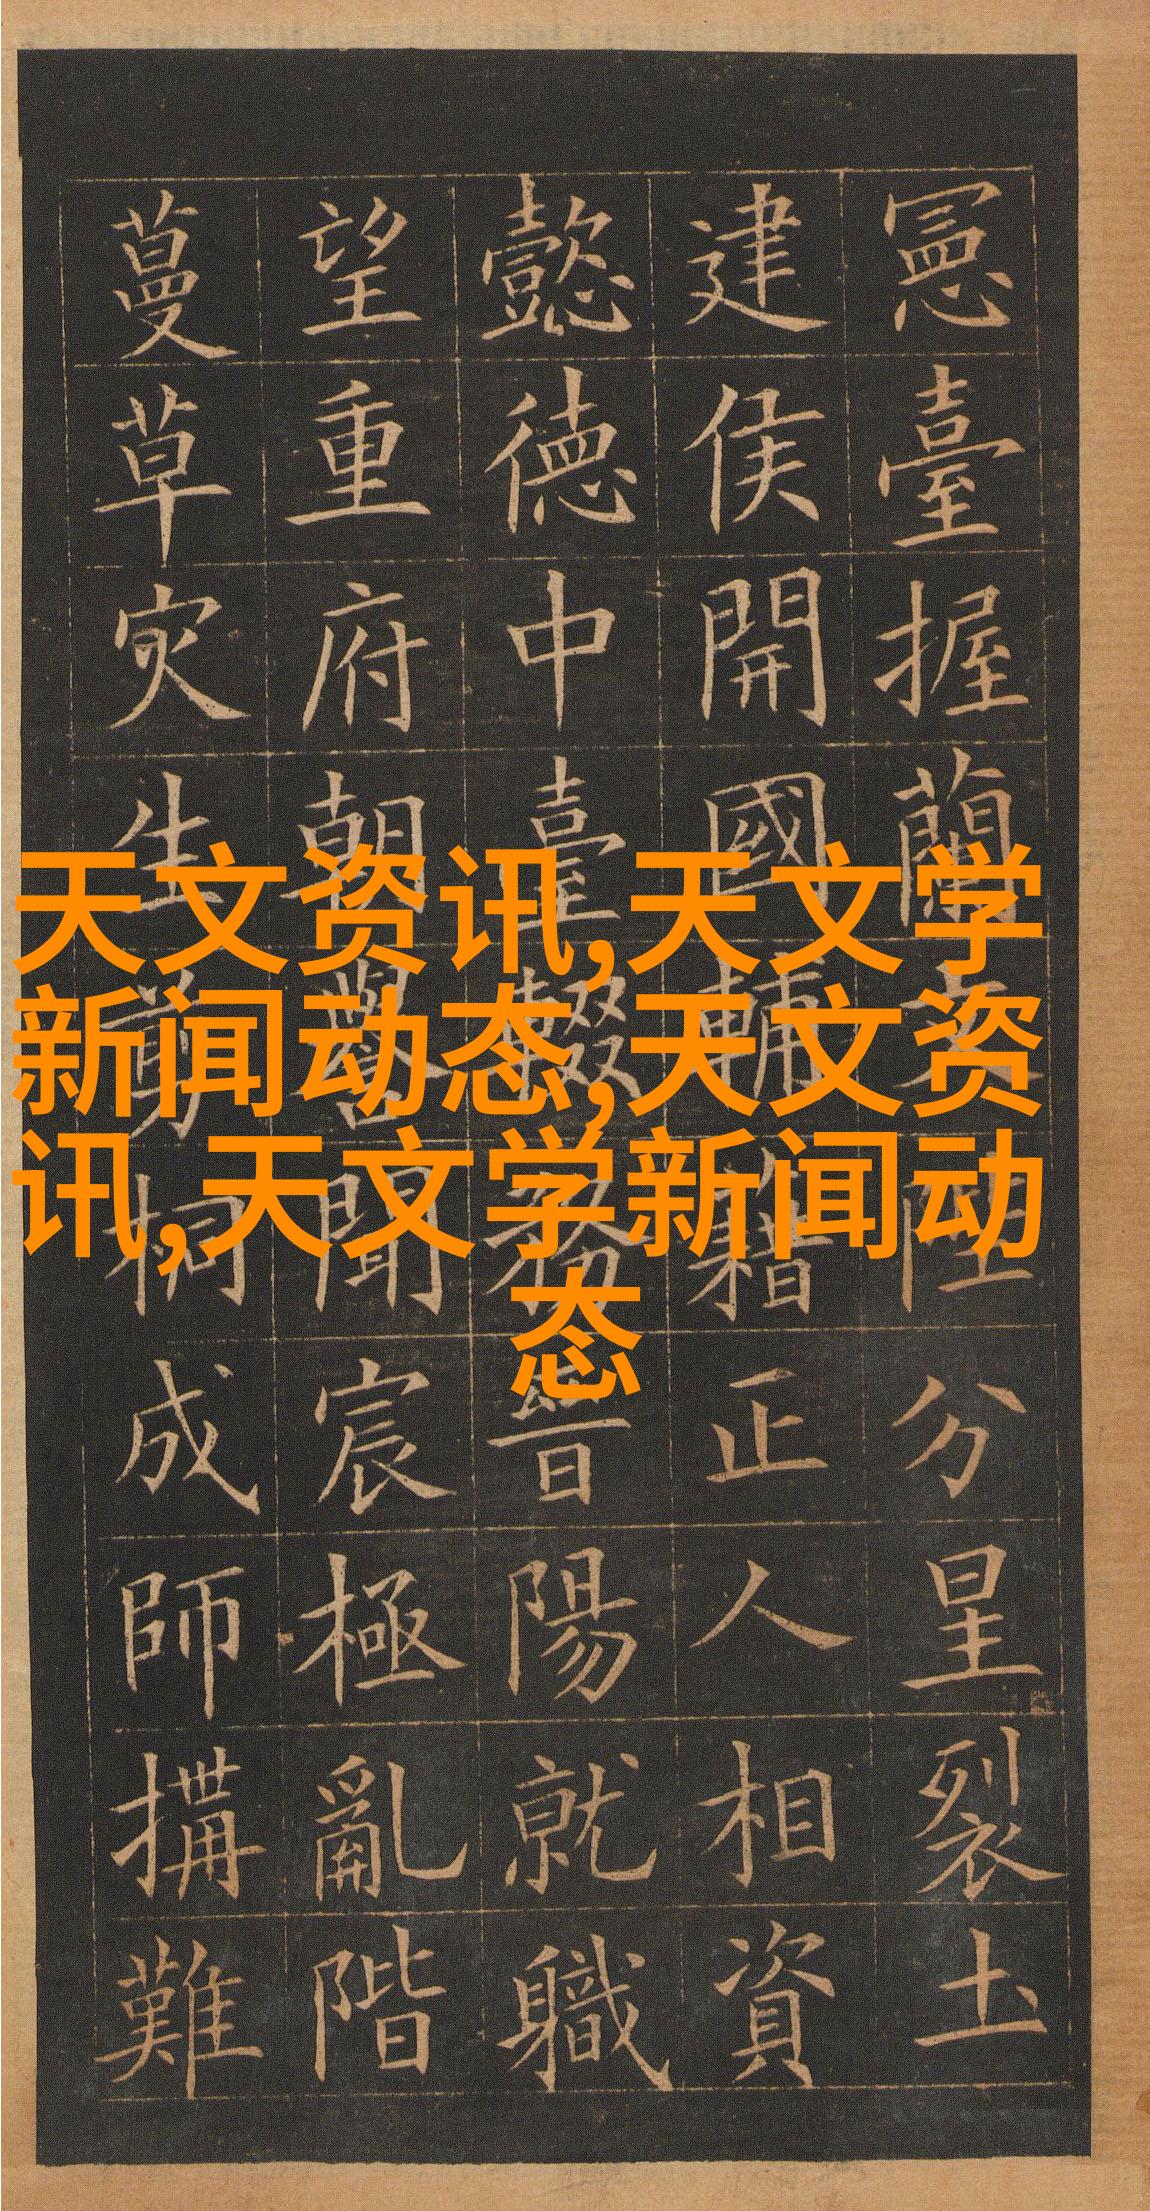 天文资讯,天文学
新闻动态,天文资
讯,天文学新闻动
态
憲臺握蘭文陛分星裂土
建侯開國輔籍正人相資
懿德中臺輟務晉陽就職
望重府朝譽聞宸極亂階
蔓草灾生剪桐成師搆難